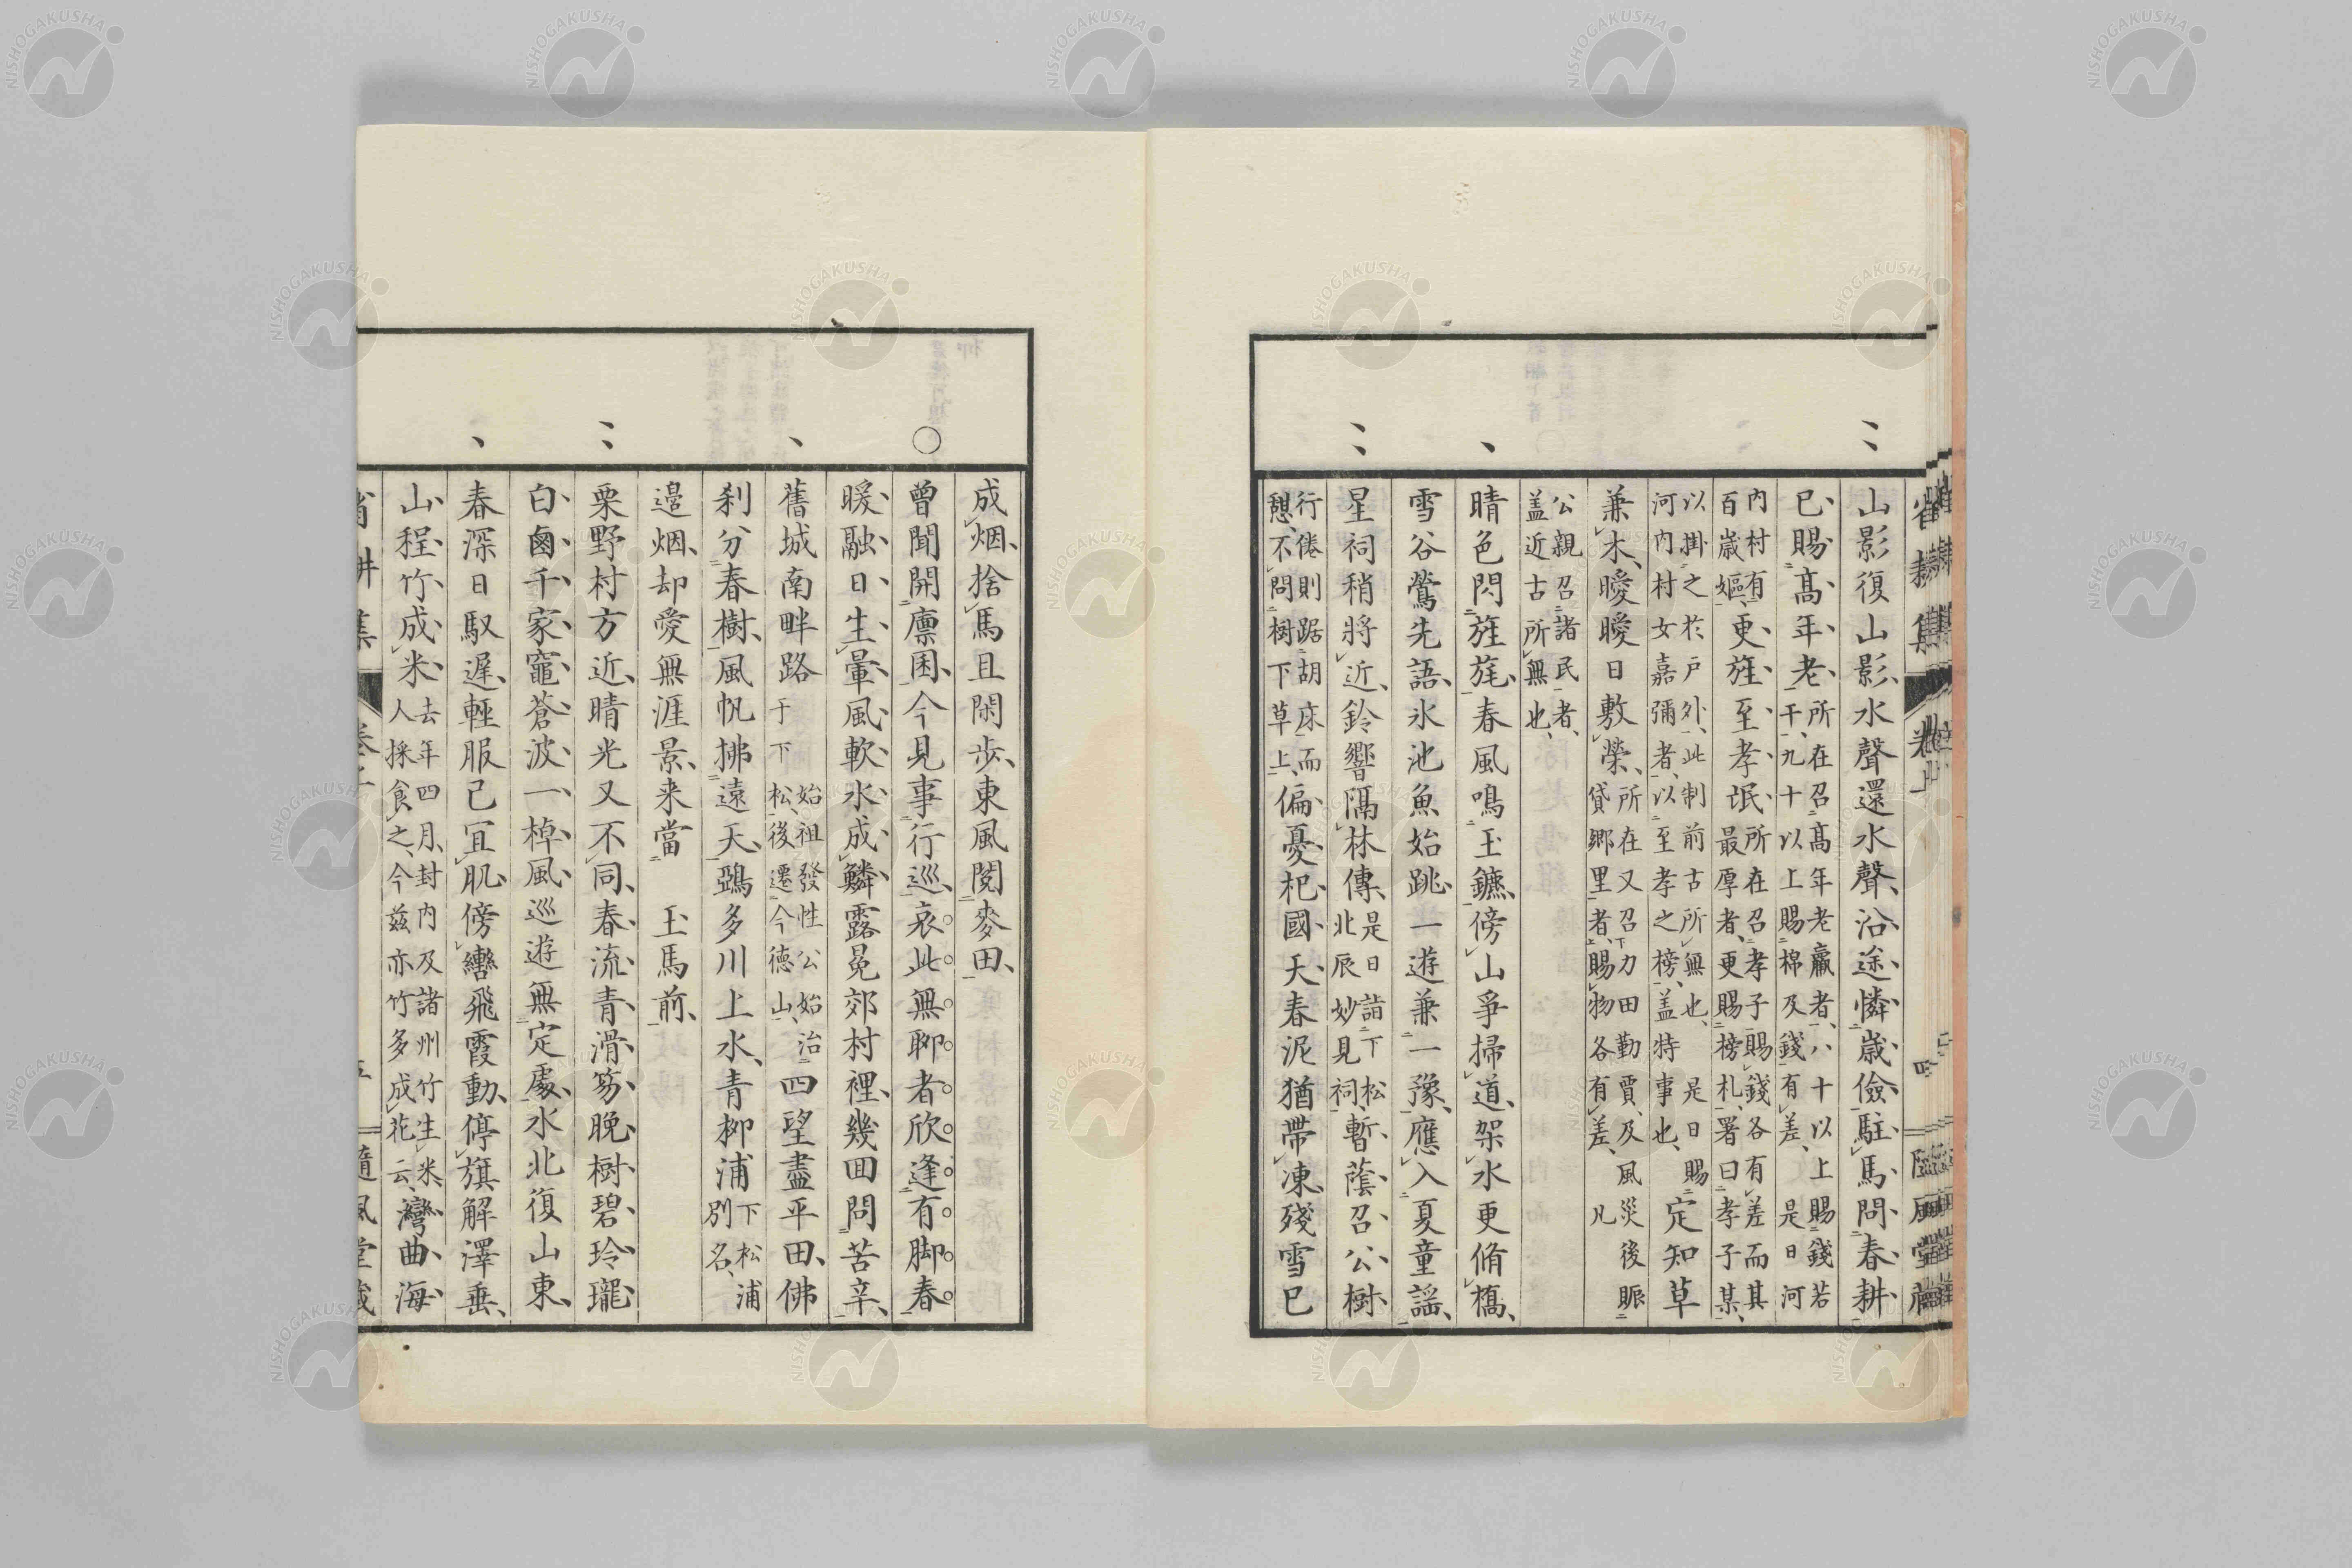 山影復山影水聲還水聲沿途憐歳儉駐馬問春耕
已賜髙年老所在召髙年老羸者八十以上賜錢若
干九十以上賜棉及錢有差是日河
内村有
百歳嫗更旌至孝氓所在召孝子賜錢各有差而其
最厚者更賜榜札署曰孝子某
以掛之於戸外此制前古所無也是日賜
河内村女嘉彌者以至孝之榜盖特事也定知草
兼木曖曖日敷榮所在又召力田勤賈及風災後賑
貸郷里者賜物各有差凡
公親召諸民者
盖近古所無也
晴色閃旌旄春風鳴玉鑣傍山爭掃道架水更脩橋
雪谷鶯先語氷池魚始跳一遊兼一豫應入夏童謡
星祠稍將近鈴響隔林傳是日詣下松
北辰妙見祠暫蔭召公樹
行倦則踞胡床而
憩不問樹下草上偏憂杞國天春泥猶帶凍殘雪已
成烟捨馬且閑歩東風閲麥田
曾聞開廪困今見事行巡哀此無聊者欣逢有脚春
暖融日生暈風軟水成鱗露冕郊村裡幾回問苦辛
舊城南畔路始祖發性公始治
于下松後遷今德山四望盡平田佛
刹分春樹風帆拂遠天鵶多川上水青柳浦下松浦
別名
邉烟却愛無涯景来當 玉馬前
栗野村方近晴光又不同春流青滑笏晩樹碧玲瓏
白鹵千家竈蒼波一棹風巡遊無定處水北復山東
春深日馭遲輕服已宜肌傍轡飛霞動停旗解澤垂
山程竹成米去年四月封内及諸州竹生米
人採食之今兹亦竹多成花云灣曲海
省耕集